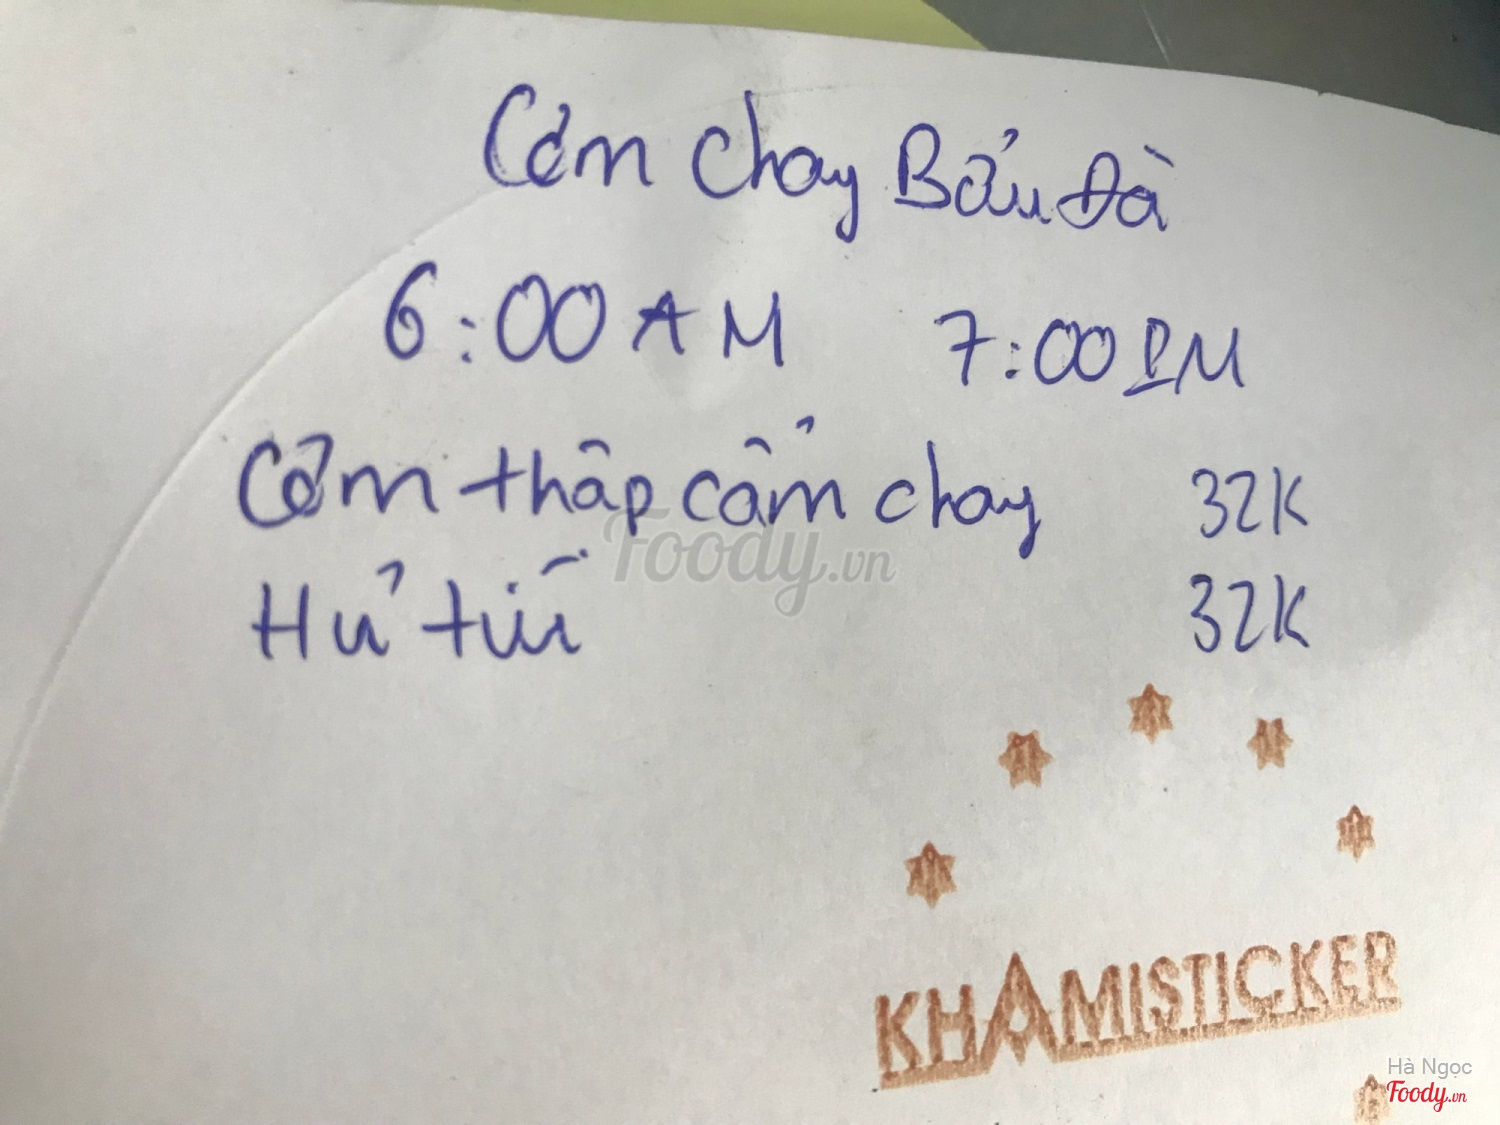 Cơm chay Bửu Đà
6:00 AM 7:00 PM
Cơm thâp cẩm chay 32K
Hủ tíu 32K
Foody.vn
KHAMISTICKER
Hà Ngọc
Foody.vn